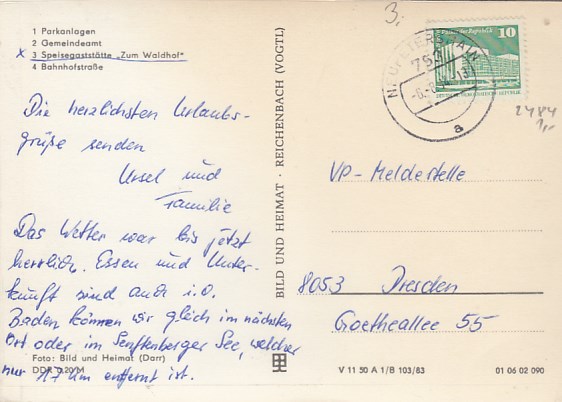 1 Parkanlagen
2 Gemeindeamt
x 3 Speisegaststätte „Zum Waldhof"
4 Bahnhofstraße
Die herzlichsten Urlaubs-
grüße senden
Ursel und
Familie
Das Wetter war bis jetzt
herrlich. Essen und Unter-
kunft sind auch i.O.
Baden können wir gleich im nächsten
Ort oder im Senftenberger See, welcher
nur 17 km entfernt ist.
Foto: Bild und Heimat (Darr)
DDR 0,20 M
BILD UND HEIMAT · REICHENBACH (VOGTL)
3,-
NEUPETERSHAIN
a
10
2484
1,-
VP-Meldestelle
8053 Dresden
Goetheallee 55
V 11 50 A 1/B 103/83
01 06 02 090